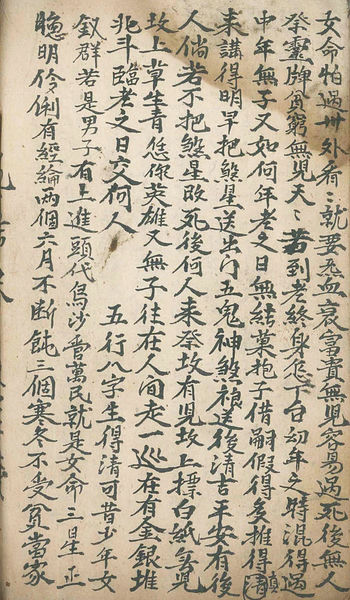 女命怕過卅外看〻就要无血衰富貴無兒容易過死後無人
癸灵牌貧窮無兒天〻若到老終身底下白幼年之時混得過
中年無子又如何年老之日無結菓抱子借嗣假得多推得清
来講得明早把煞星送出门五鬼神煞禳送後清吉平安有後
人倘若不把煞星敗死後何人来癸坟有兒坟上摽白紙無兒
坟上草生青恁你英雄又無子往在人间走一巡在有金銀堆
北斗臨老之日交何人 五行八字生得清可昔少年女
釵群若是男子有上進頭代烏沙管萬民就是女命三星正
聰明伶俐有經綸兩個六月不断飩三個寒冬不受貧當家